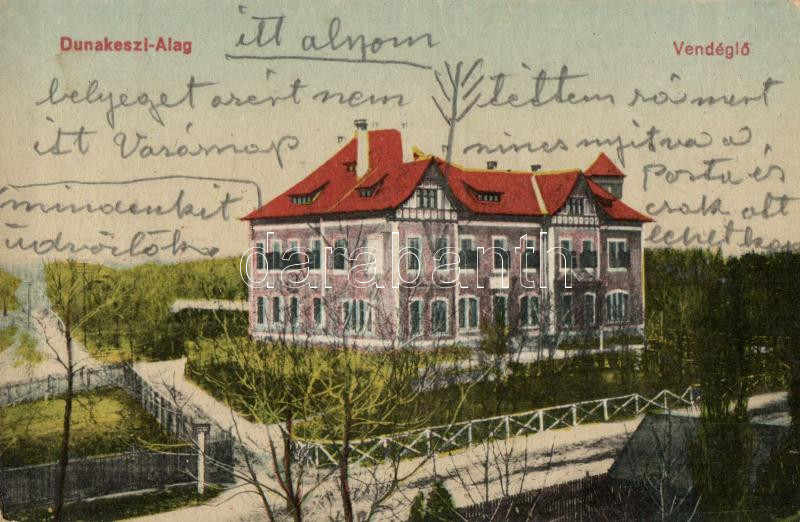 Dunakeszi-Alag
Vendéglő
itt alyom
belyeget azért nem tettem rá mert
itt Vasárnap nincs nyitva a
Posta és
csak ott
lehet
mindenkit
üdvözlök.
darabanth